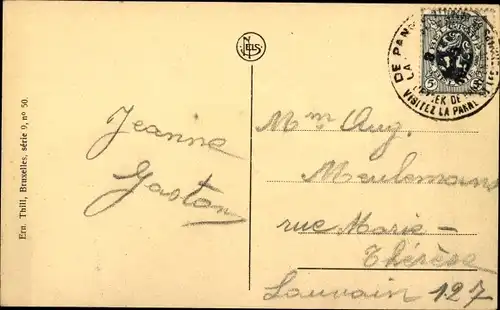 Ern. Thill, Bruxelles, série 9, no 50.
NELS
Jeanne
Gaston
DE PANNE
LA
VISITEZ LA PANNE
5
Mme Aug.
Meulemans
rue Marie-
Thérèse
Louvain 127